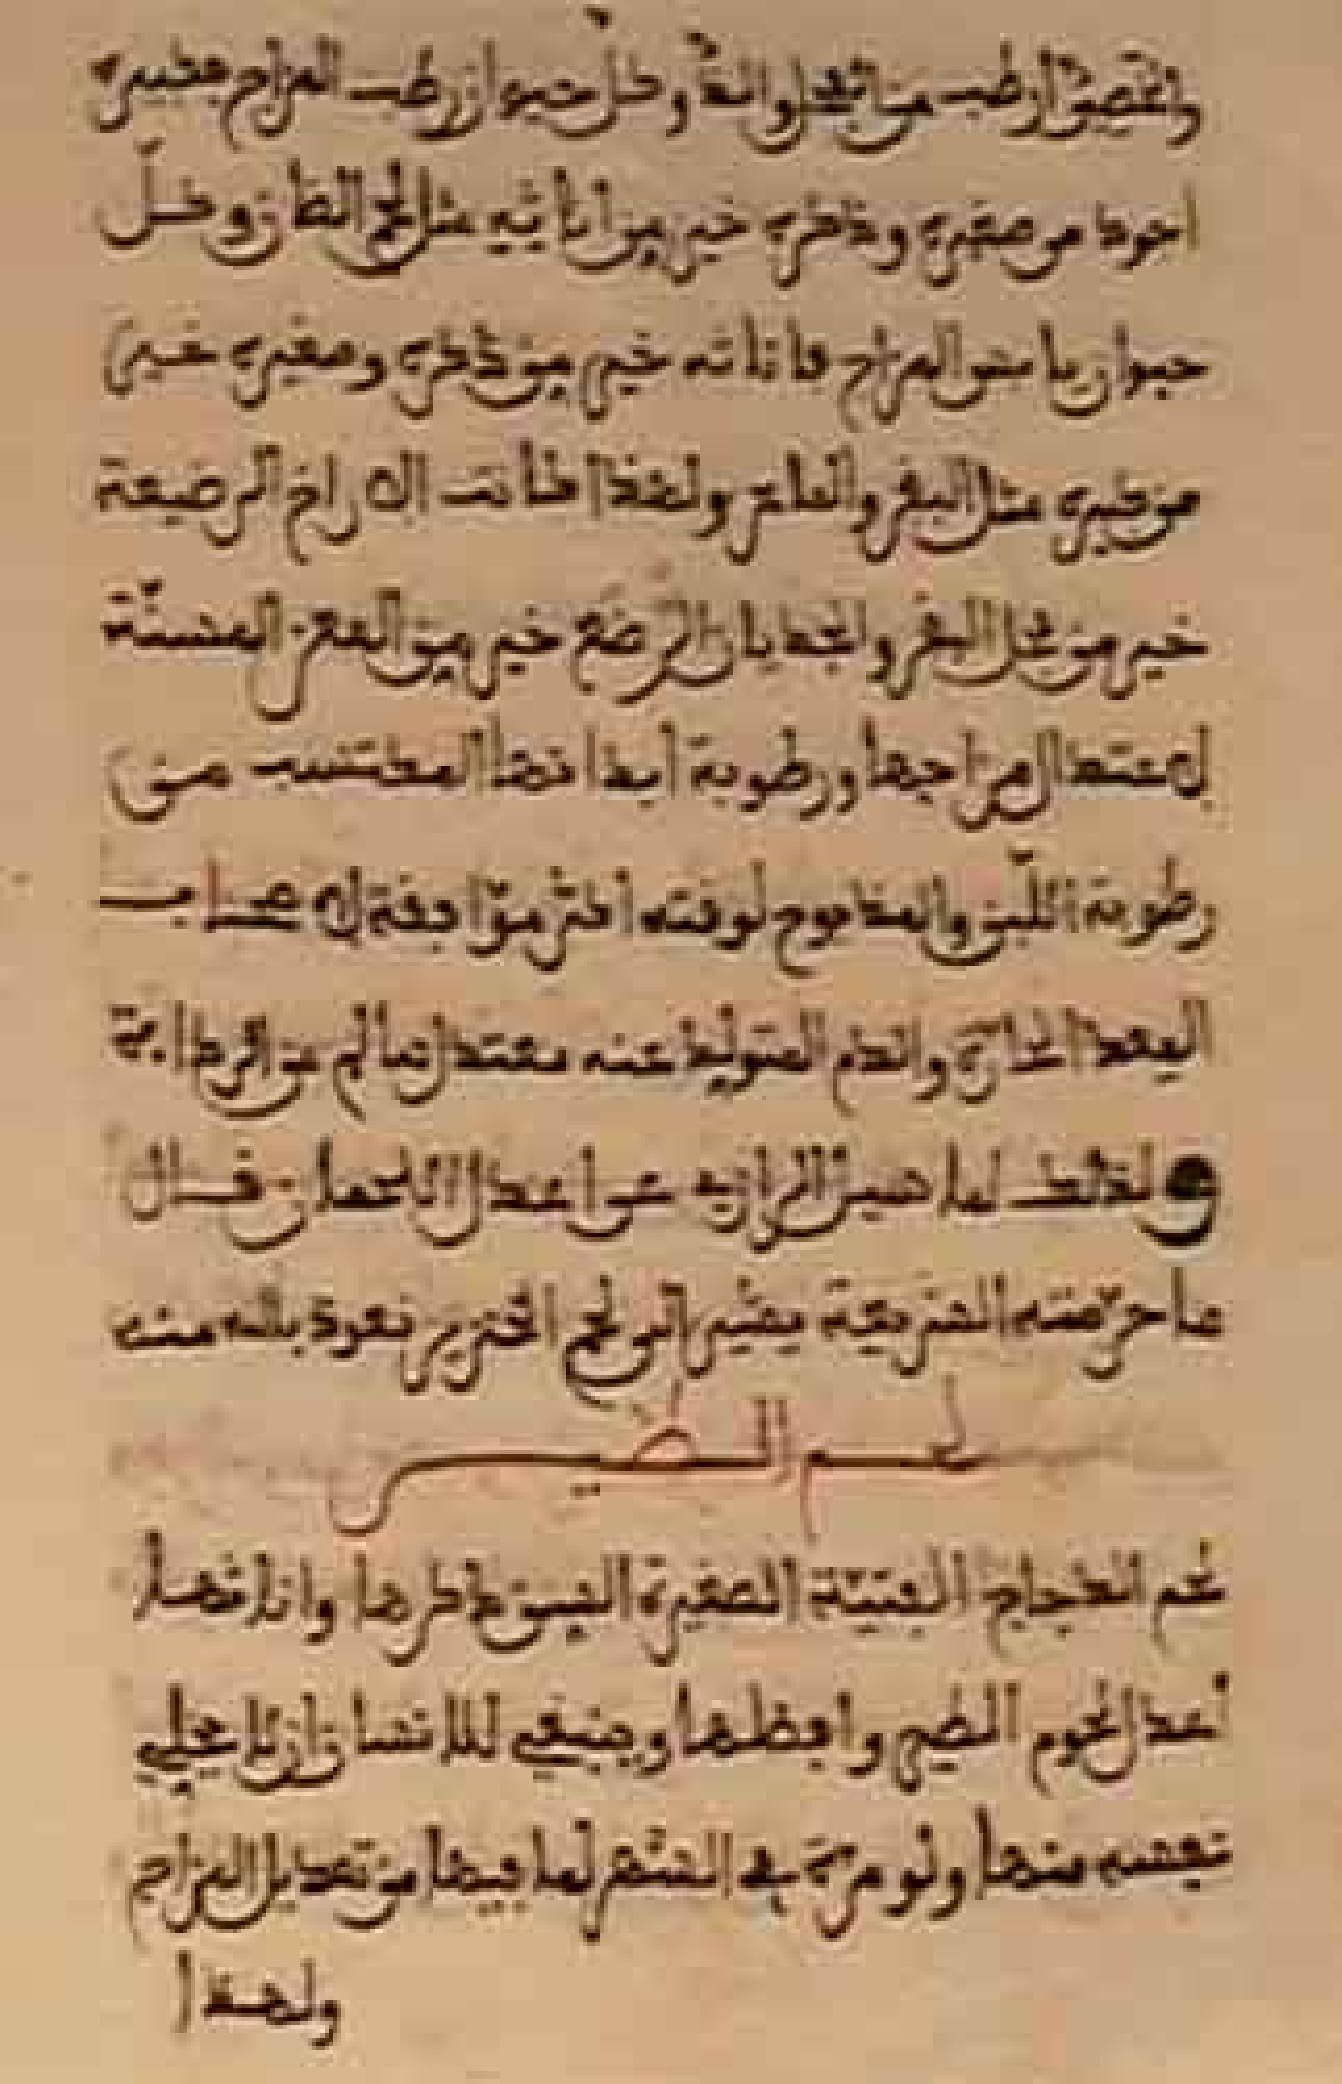 والخصي أرطب من الفحل وكل حيوان رطب المزاج فكبيره
اجود من صغيره وذكره خير من اناثيه مثل لحم الضأن وكلّ
حيوان يابس المزاج فاناثه خير من ذكره وصغيره خير
من كبيره مثل البقر والماعز ولهذا كانت الاراخ الرضيعة
خير من عجل البقر والجديان الرضع خير من المعز المسنّة
لاعتدال مزاجها ورطوبة أبدانها المكتسبة من
رطوبة اللّبن والمذبوح لوقته اكثر موافقة لاصحاب
المعدة الحارّة والدم المتولد عنه معتدل سالم من الرداءة
ولذلك لما سئل الرازي عن اعدل اللحمان قال
ما حرّمته الشريعة يشير الى لحم الخنزير نعوذ بالله منه
لحم الطّير
لحم الدجاج الفتيّة الصغيرة السن ذكرها واناثها
أعدل لحوم الطير وافضلها وينبغي للانسان ان لا يخلي
نفسه منها ولو مرّة في الشهر لما فيها من تعديل المزاج
ولهذا